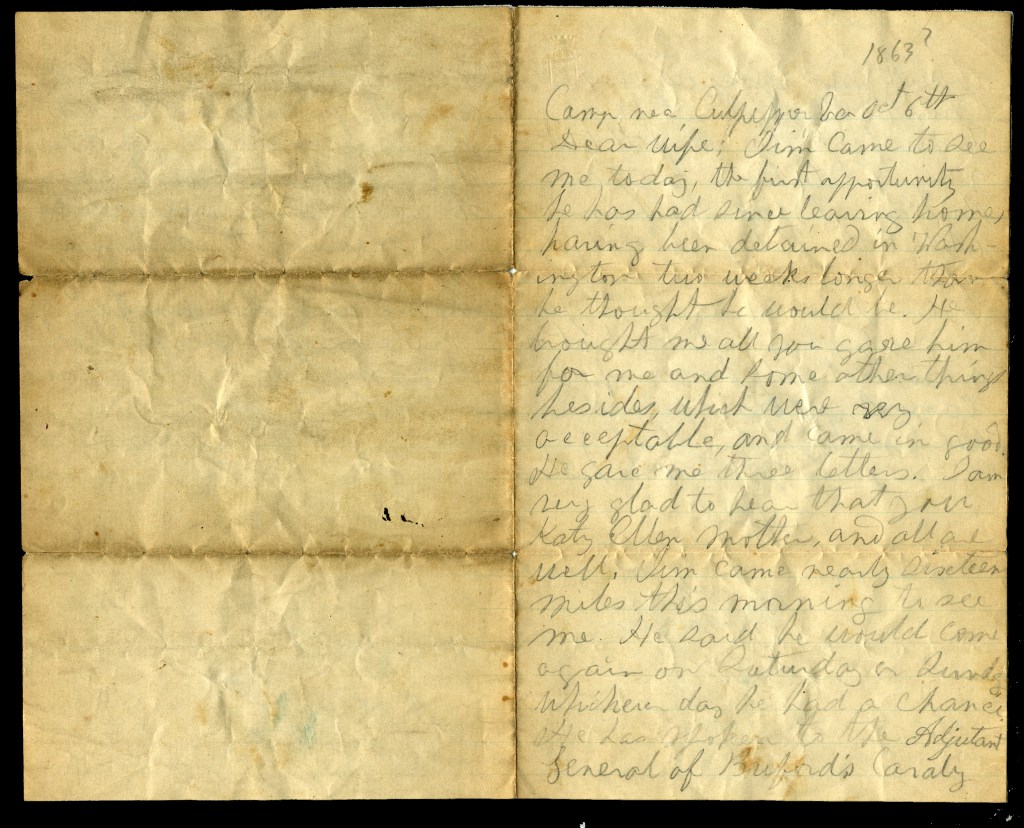 1863?
Camp near Culpepper Va Oct 6th
Dear Wife; Jim Came to see
me today, the first opportunity
he has had since leaving home,
having been detained in Wash-
ington two weeks longer than
he thought he would be. He
brought me all you gave him
for me and some other things
besides, which were very
acceptable, and came in good.
He gave me three letters. I am
very glad to hear that you
Katy Ellen Mother, and all are
well. Jim came nearly sixteen
miles this morning to see
me. He said he would come
again on Saturday or Sunday
whichever day he had a chance.
He has spoken to the Adjutant
General of Buford's Cavalry